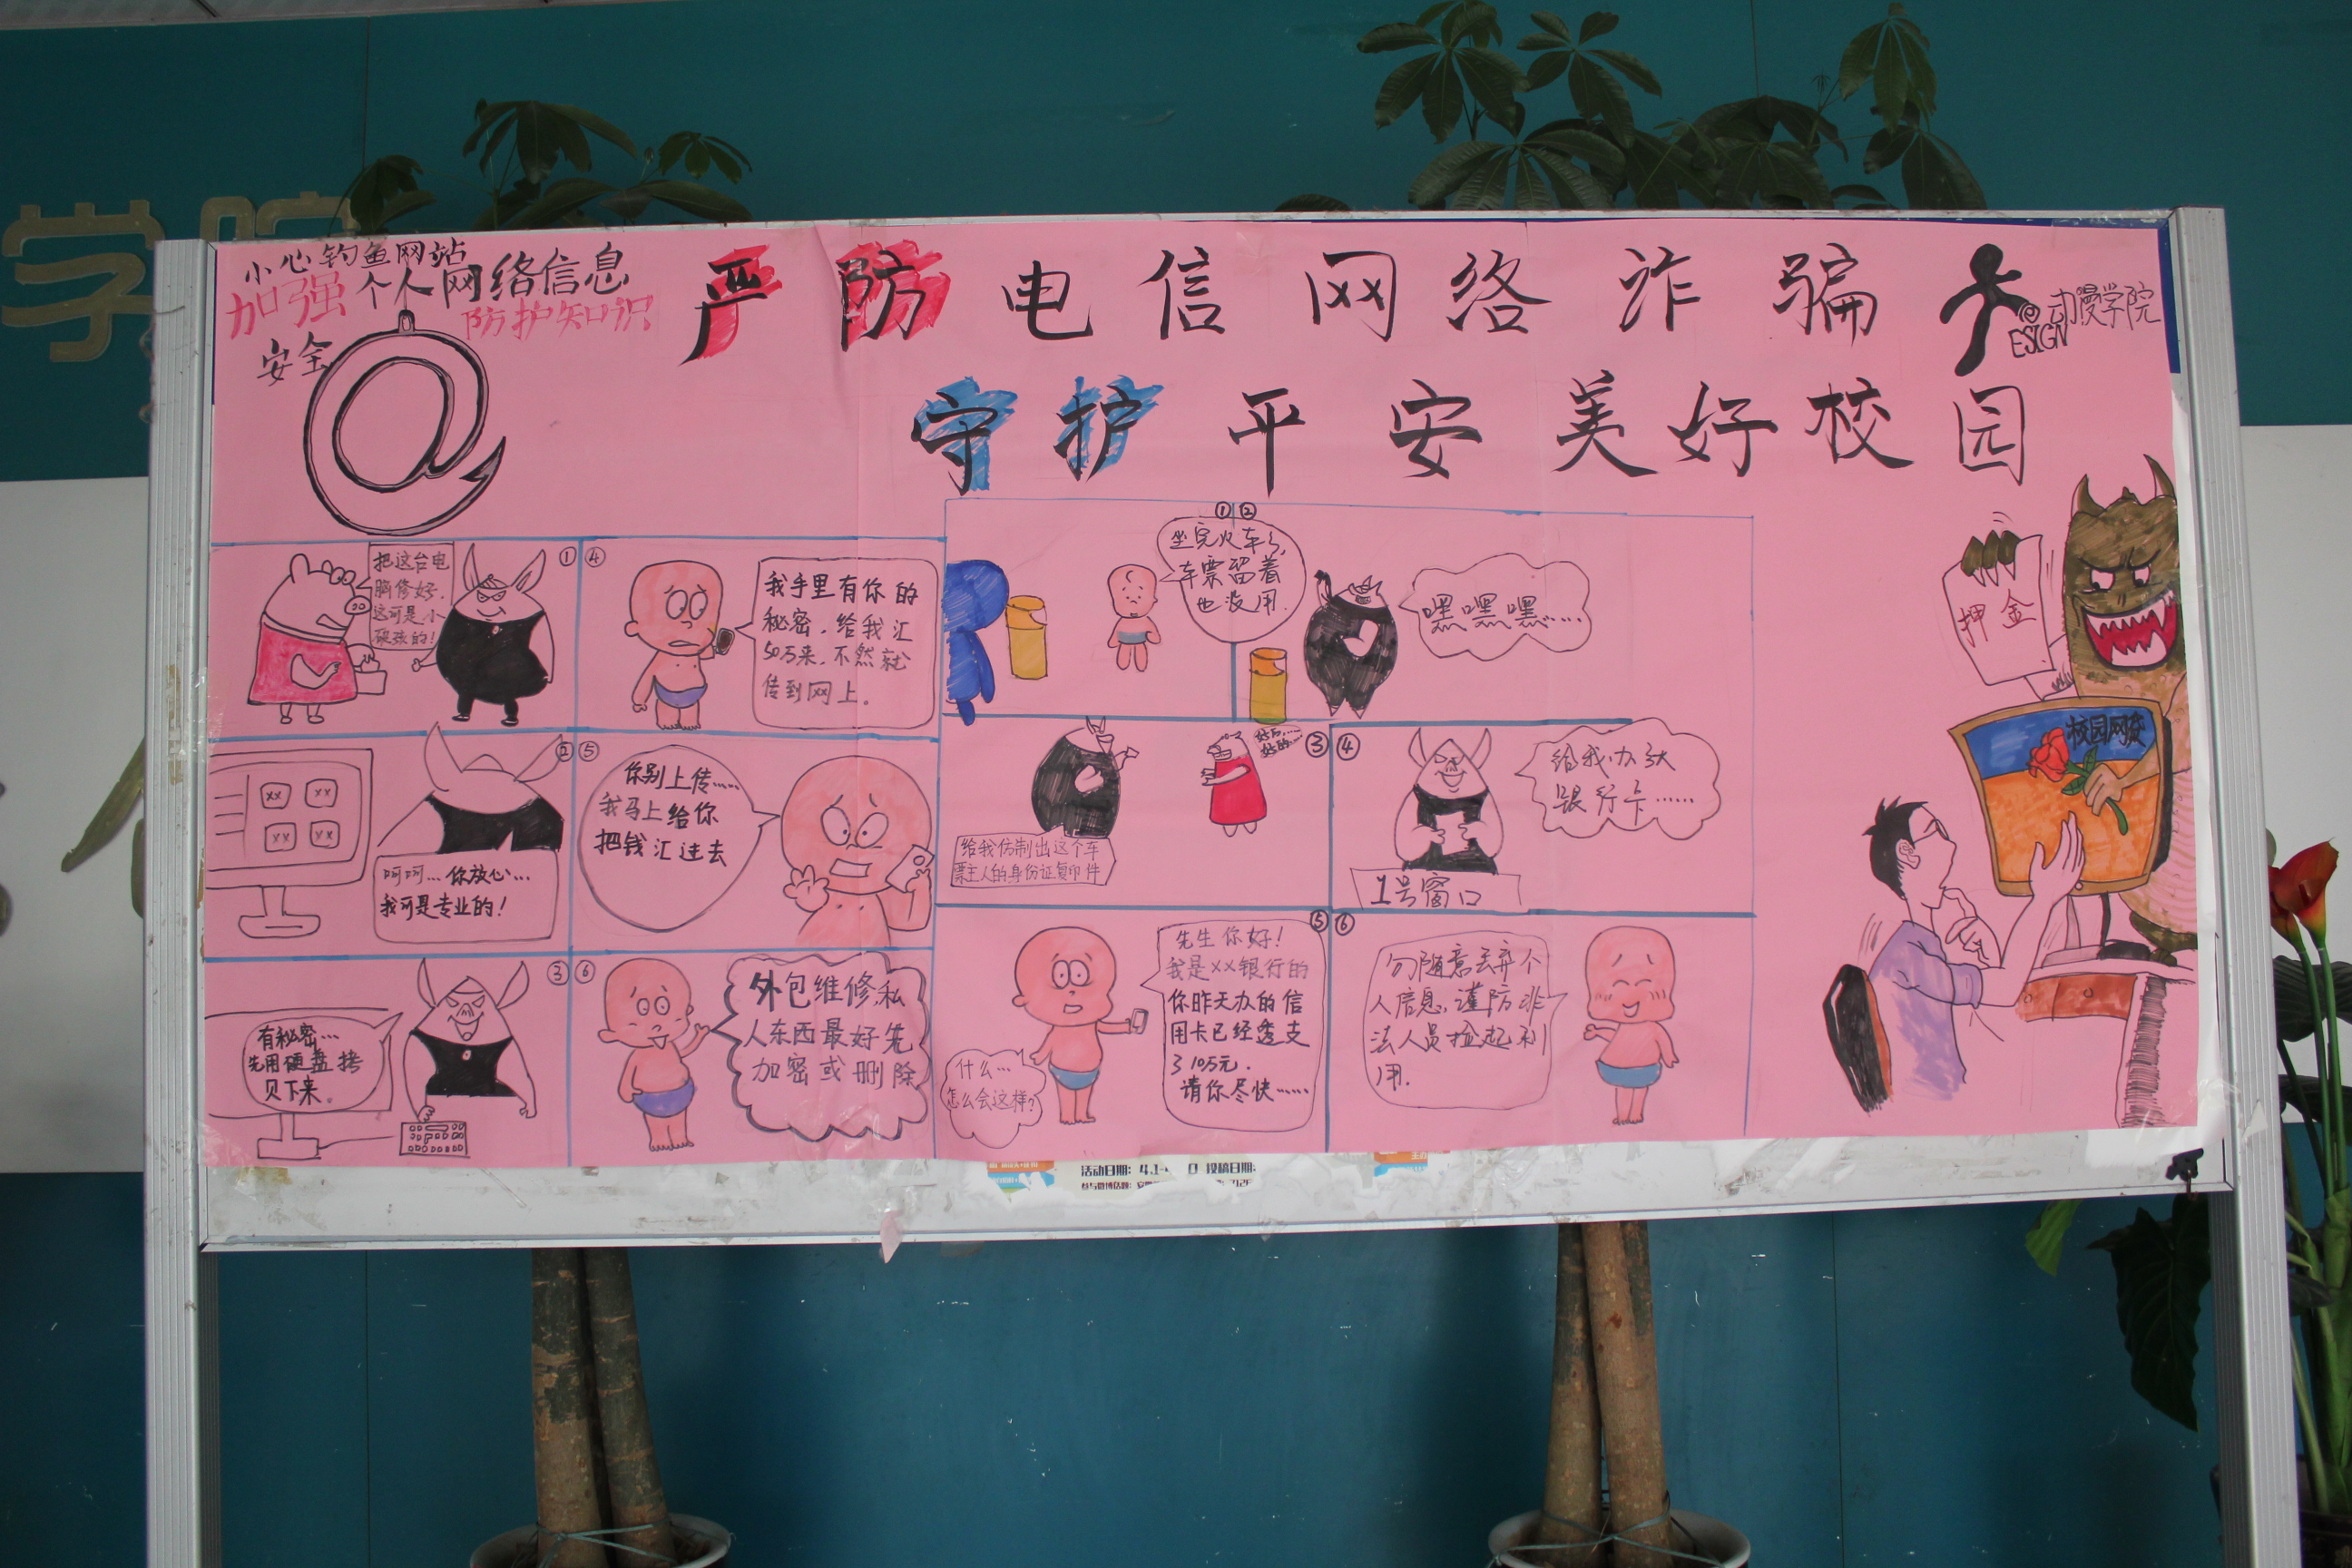 学院
小心钓鱼网站
加强个人网络信息
安全 防护知识
严防电信网络诈骗
守护平安美好校园
@动漫学院
ESIGN
①
把这台电
脑修好.
这可是小
硬张的!
②
××
××
××
××
呵呵...你放心...
我可是专业的!
③
有秘密...
先用硬盘拷
贝下来。
④
我手里有你的
秘密,给我汇
50万来,不然就
传到网上。
⑤
你别上传......
我马上给你
把钱汇过去
⑥
外包维修私
人东西最好先
加密或删除
①
坐完火车了,
车票留着
也没用.
②
嘿嘿嘿......
③
好的......
好的......
给我仿制出这个车
票主人的身份证复印件
④
给我办张
银行卡......
1号窗口
⑤
先生你好!
我是××银行的
你昨天办的信
用卡已经透支
了10万元.
请你尽快......
什么...
怎么会这样?
⑥
勿随意丢弃个
人信息,谨防非
法人员捡起利
用.
押金
校园网贷
活动日期: 4.1- 投稿日期: